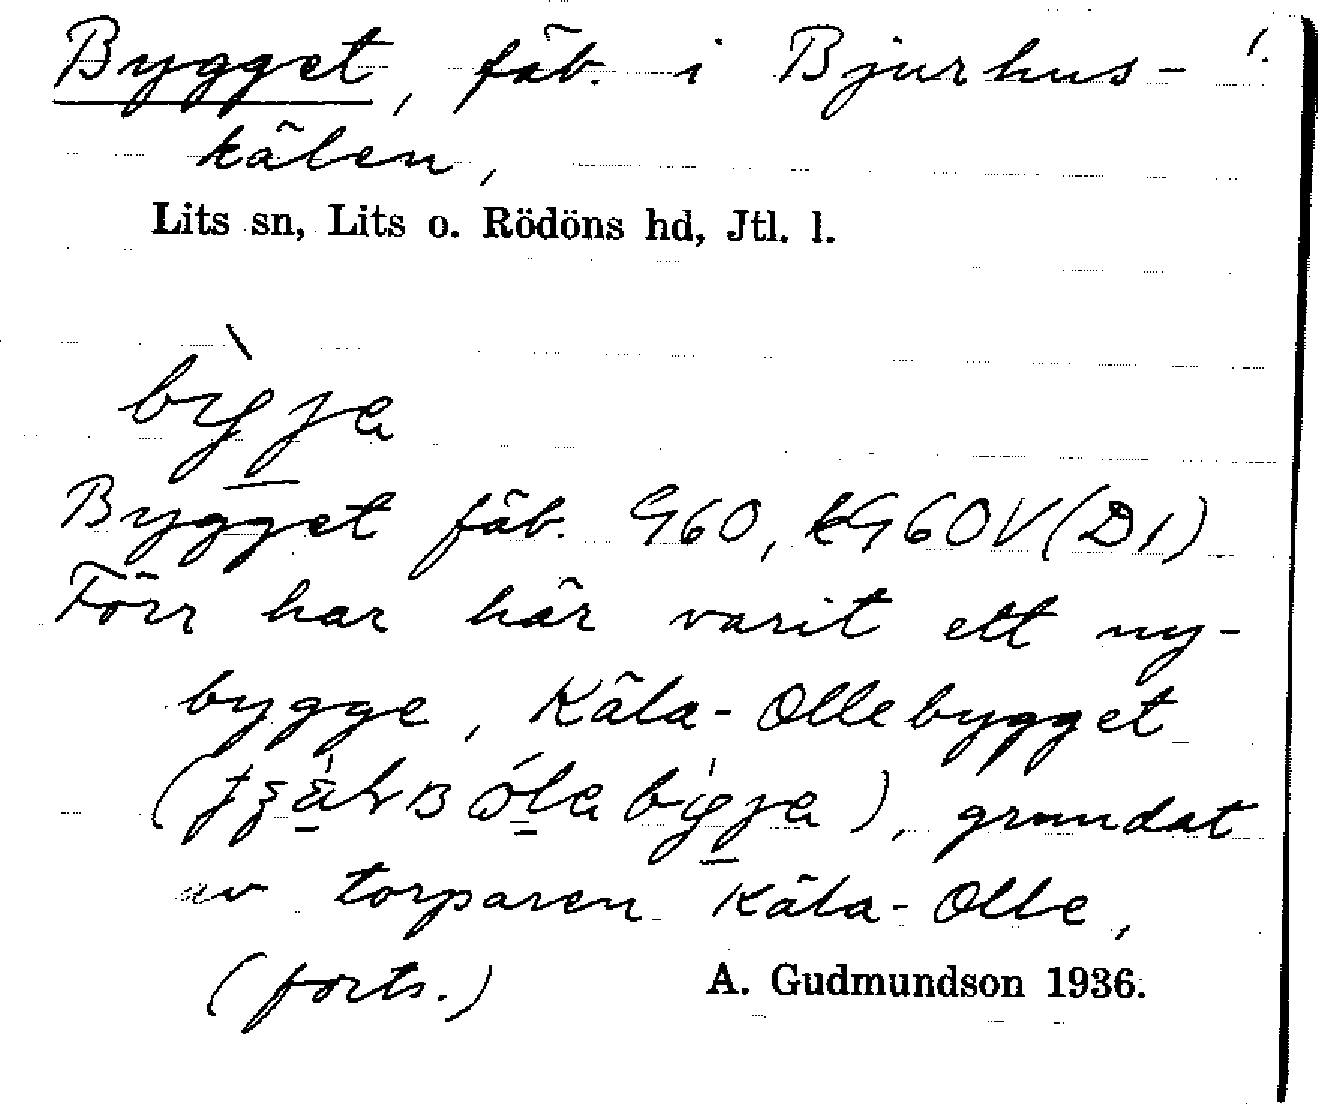 Bygget, fäb. i Bjurhus- !
kälen,
Lits sn, Lits o. Rödöns hd, Jtl. l.
Bygget fäb. G60, kG60V(D1)
Förr har här varit ett ny-
bygge, Käla-Ollebygget
grundat
av torparen Käla-Olle,
(forts.) A. Gudmundson 1936.